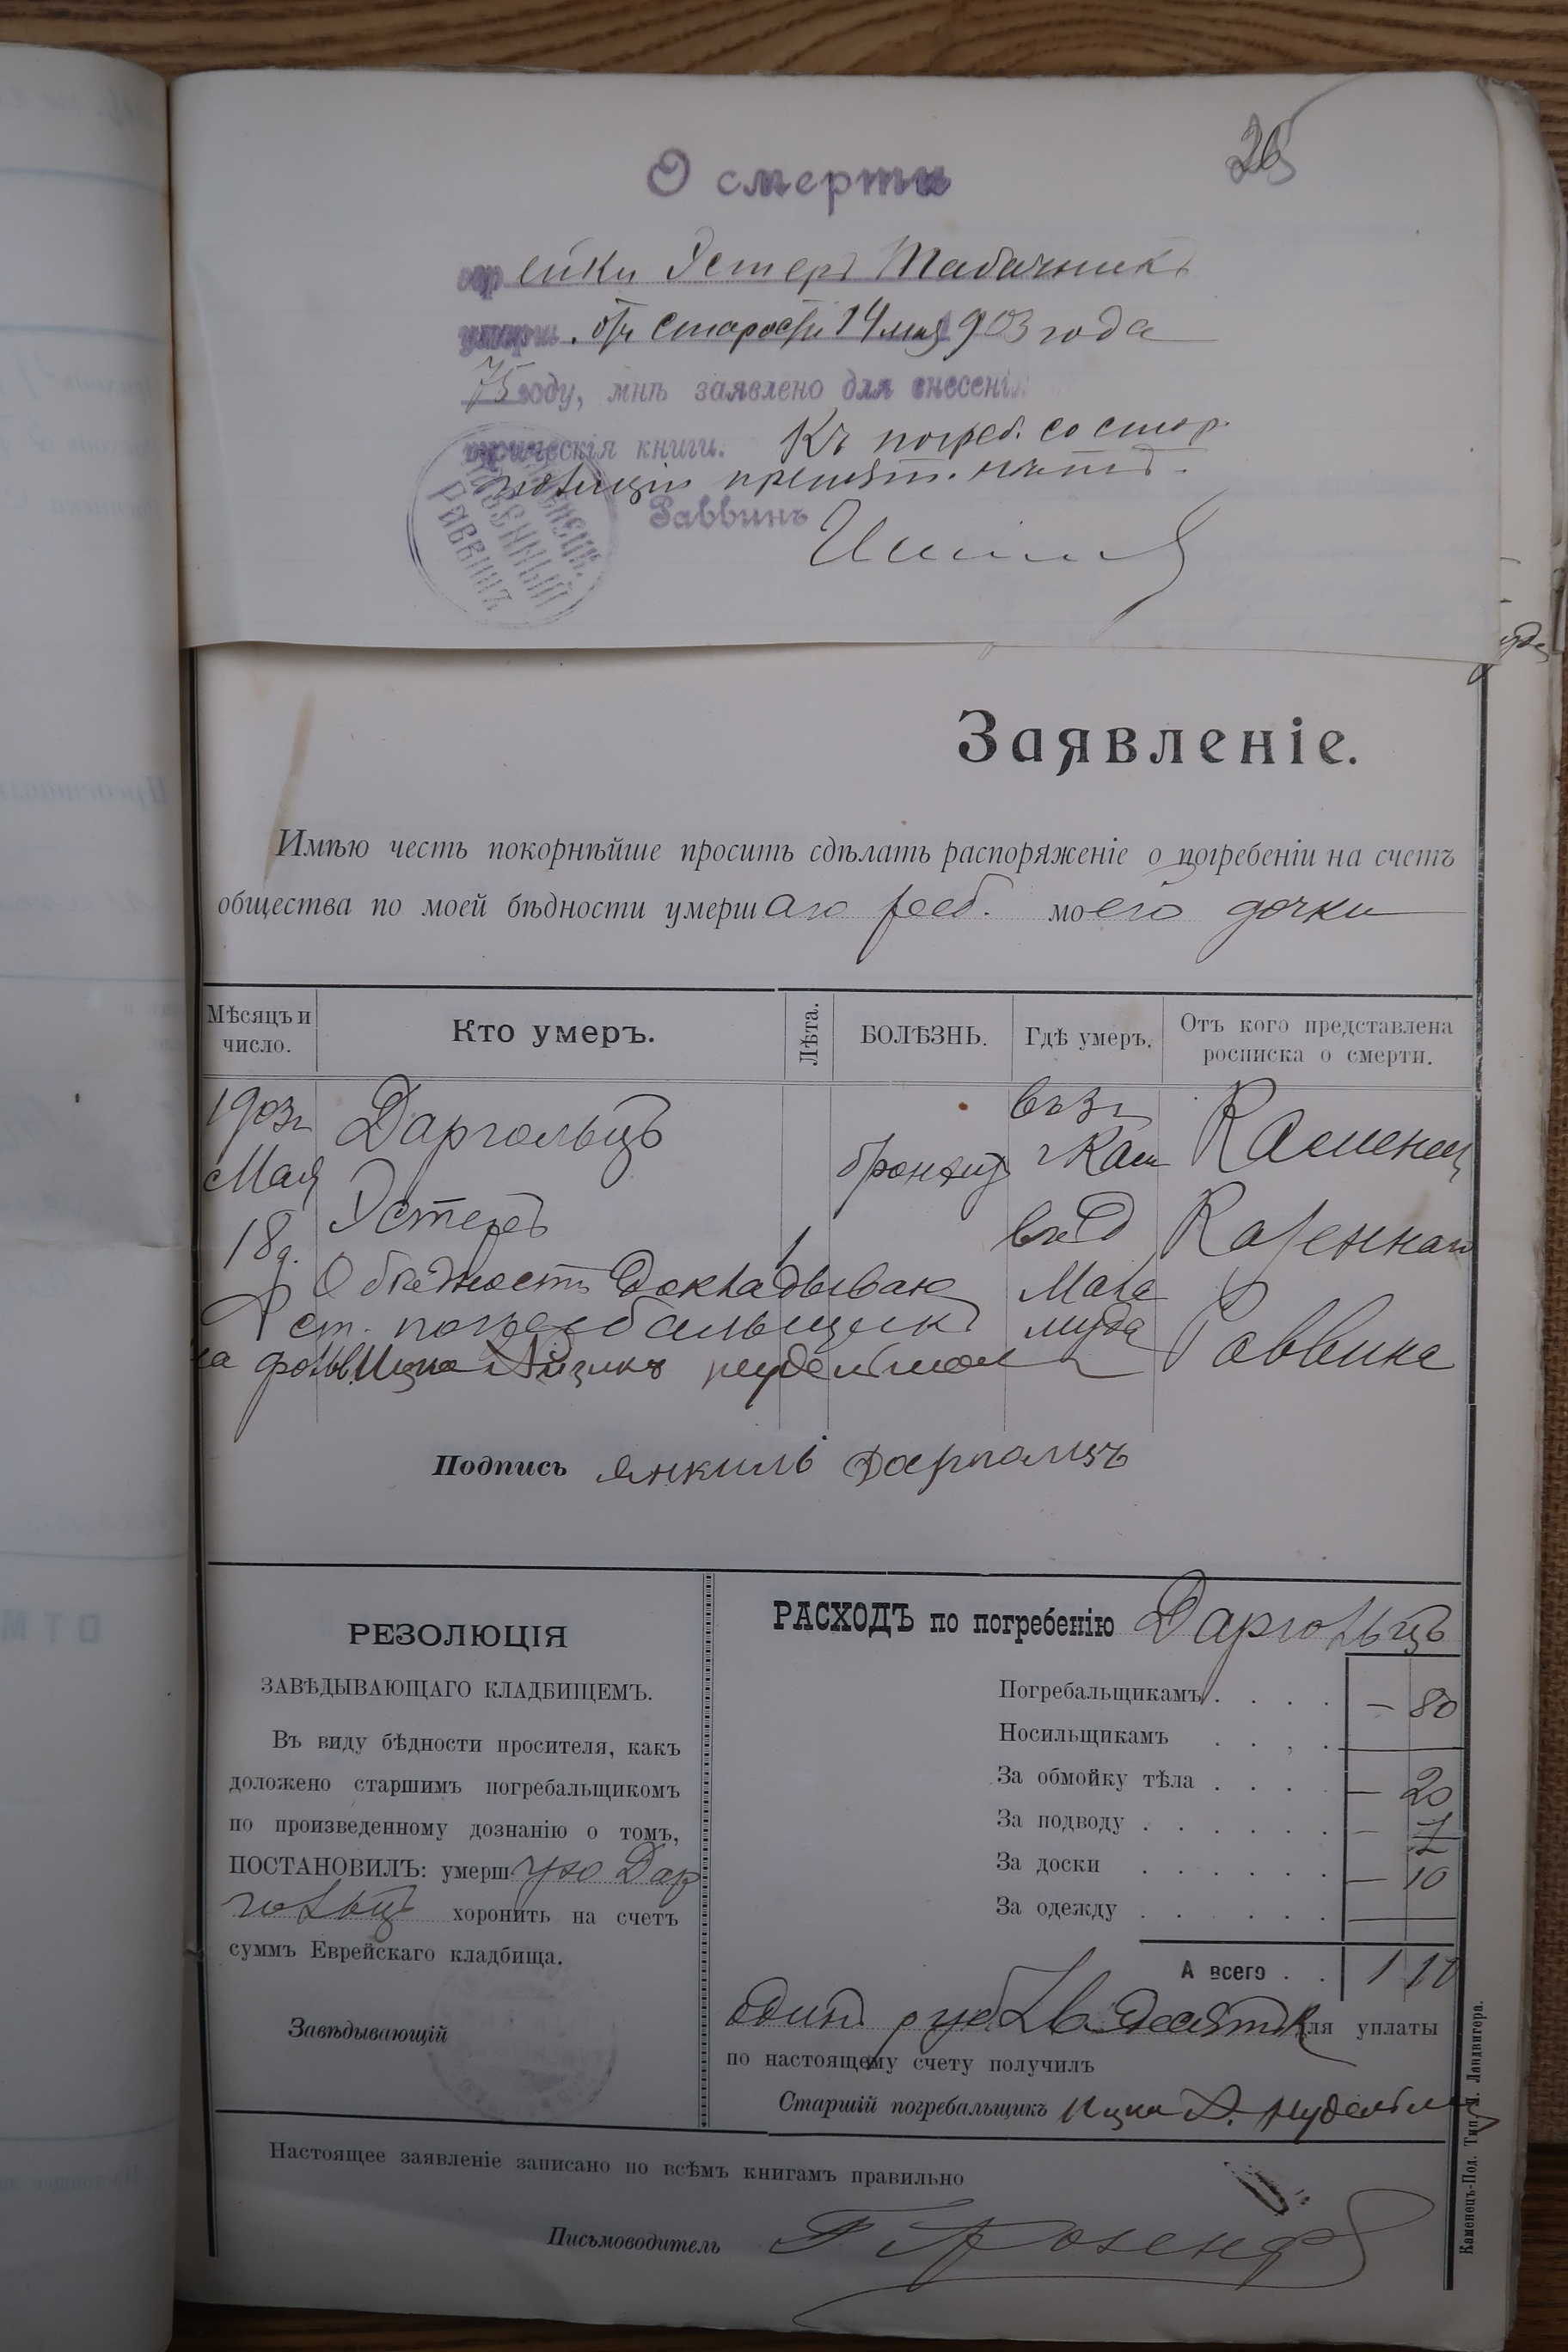 26
О смерти
евр ейки Эстеръ Табачникъ
умерш. отъ старости 14 мая 903 года
75 году, мнѣ заявлено для внесенія
метрическія книги. Къ погреб. со стор.
полиціи препят. нѣтъ.
Раввинъ
КАЗЕННЫЙ
РАВВИНЪ
Заявленіе.
Имѣю честь покорнѣйше просить сдѣлать распоряженіе о погребеніи на счетъ
общества по моей бѣдности умершаго реб. моего дочки
Мѣсяцъ и число.
Кто умеръ.
Лѣта.
БОЛѢЗНЬ.
Гдѣ умеръ.
Отъ кого представлена росписка о смерти.
1903 г.
Мая
18 д.
Даргольцъ
Эстеръ
1
бронхит
г Кам
Каменец
Казеннаго
Раввина
О бѣдность докладываю
ст. погребальщикъ
Ицко Айзикъ Нудельман
Подпись Янкиль Даргольцъ
РЕЗОЛЮЦІЯ
ЗАВѢДЫВАЮЩАГО КЛАДБИЩЕМЪ.
Въ виду бѣдности просителя, какъ
доложено старшимъ погребальщикомъ
по произведенному дознанію о томъ,
ПОСТАНОВИЛЪ: умершую Дар
гольцъ хоронить на счетъ
суммъ Еврейскаго кладбища.
Завѣдывающій
РАСХОДЪ по погребенію Даргольцъ
Погребальщикамъ . . . . — 80
Носильщикамъ . . , .
За обмойку тѣла . . . . — 20
За подводу . . . . . . —
За доски . . . . . . — 10
За одежду . . . . . .
А всего . . 1 10
Одинъ руб. десять к для уплаты
по настоящему счету получилъ
Старшій погребальщикъ Ицко А. Нудельман
Настоящее заявленіе записано по всѣмъ книгамъ правильно
Письмоводитель
Каменецъ-Под. Тип. Я. Ландвигера.